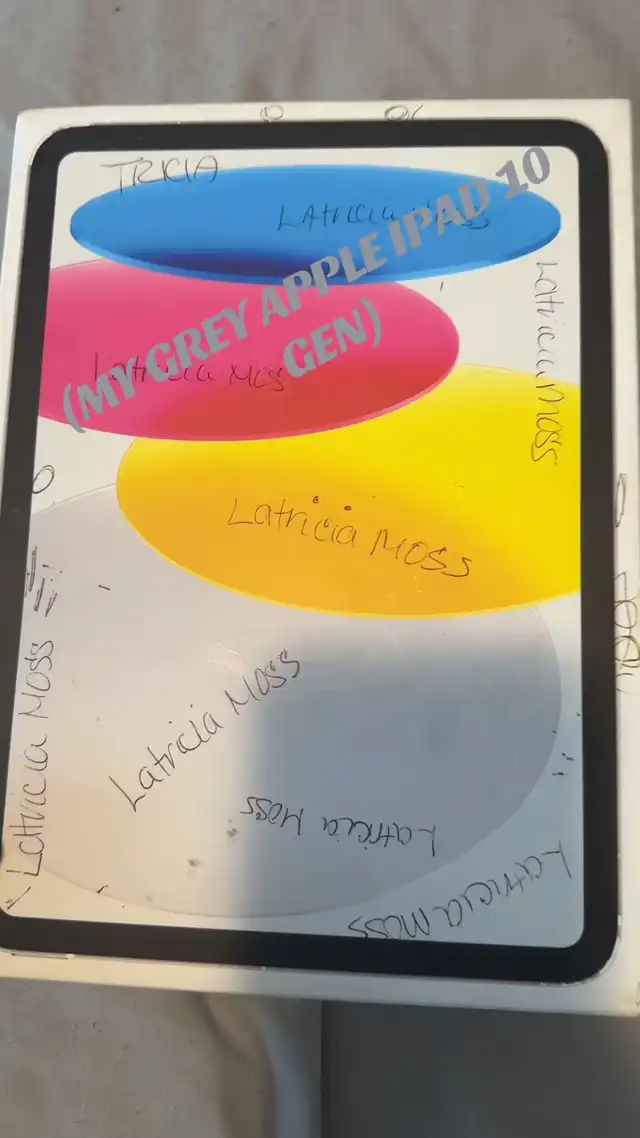 TRICIA
LAtricia Moss
(MY GREY APPLE IPAD 10
GEN)
Latricia Moss
Latricia Moss
Latricia Moss
Latricia Moss
Latricia Moss
Latricia Moss
Latricia Moss